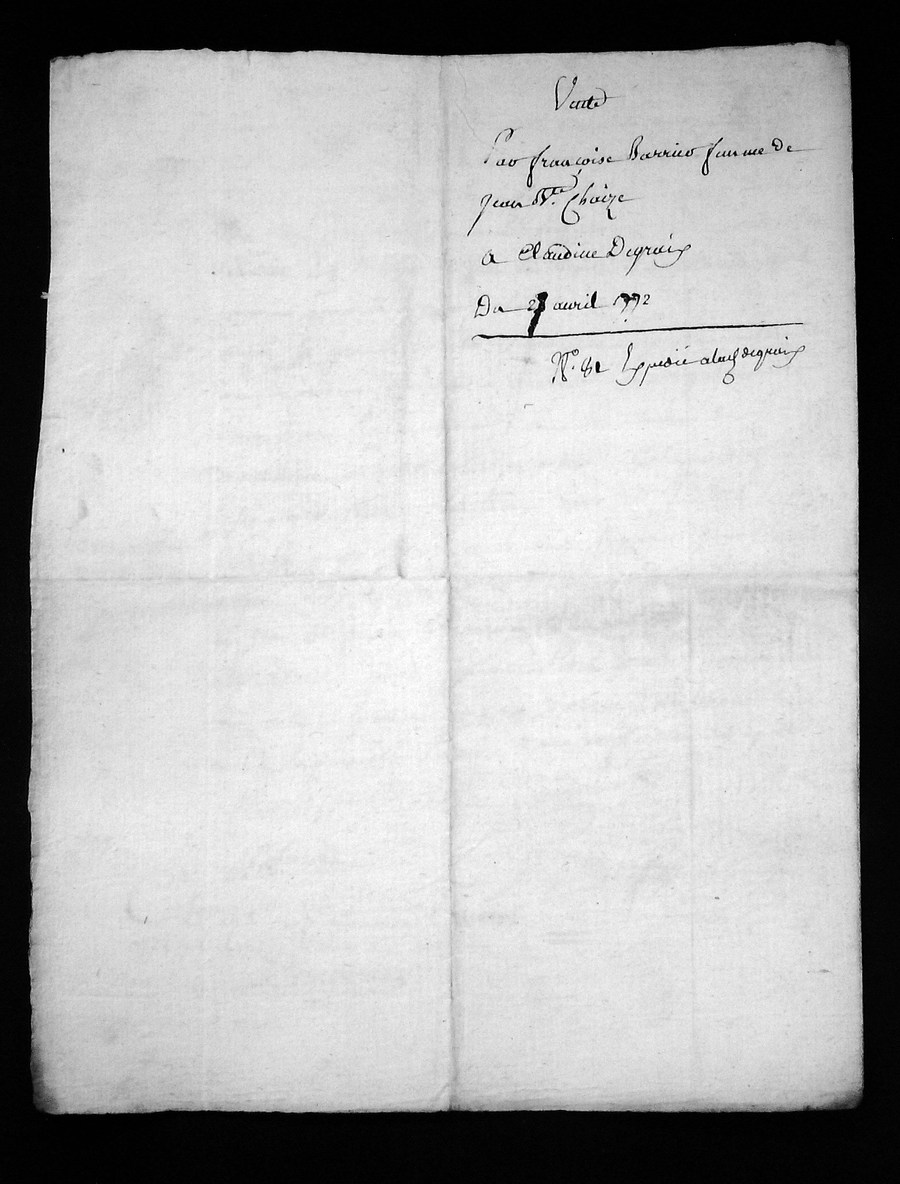 Vente
Par françoise Barrier femme de
Jean Bte. Chaize
a Claudine Degraix
Du 2 avril 1772
N°. 81 Expédié a lad. degraix